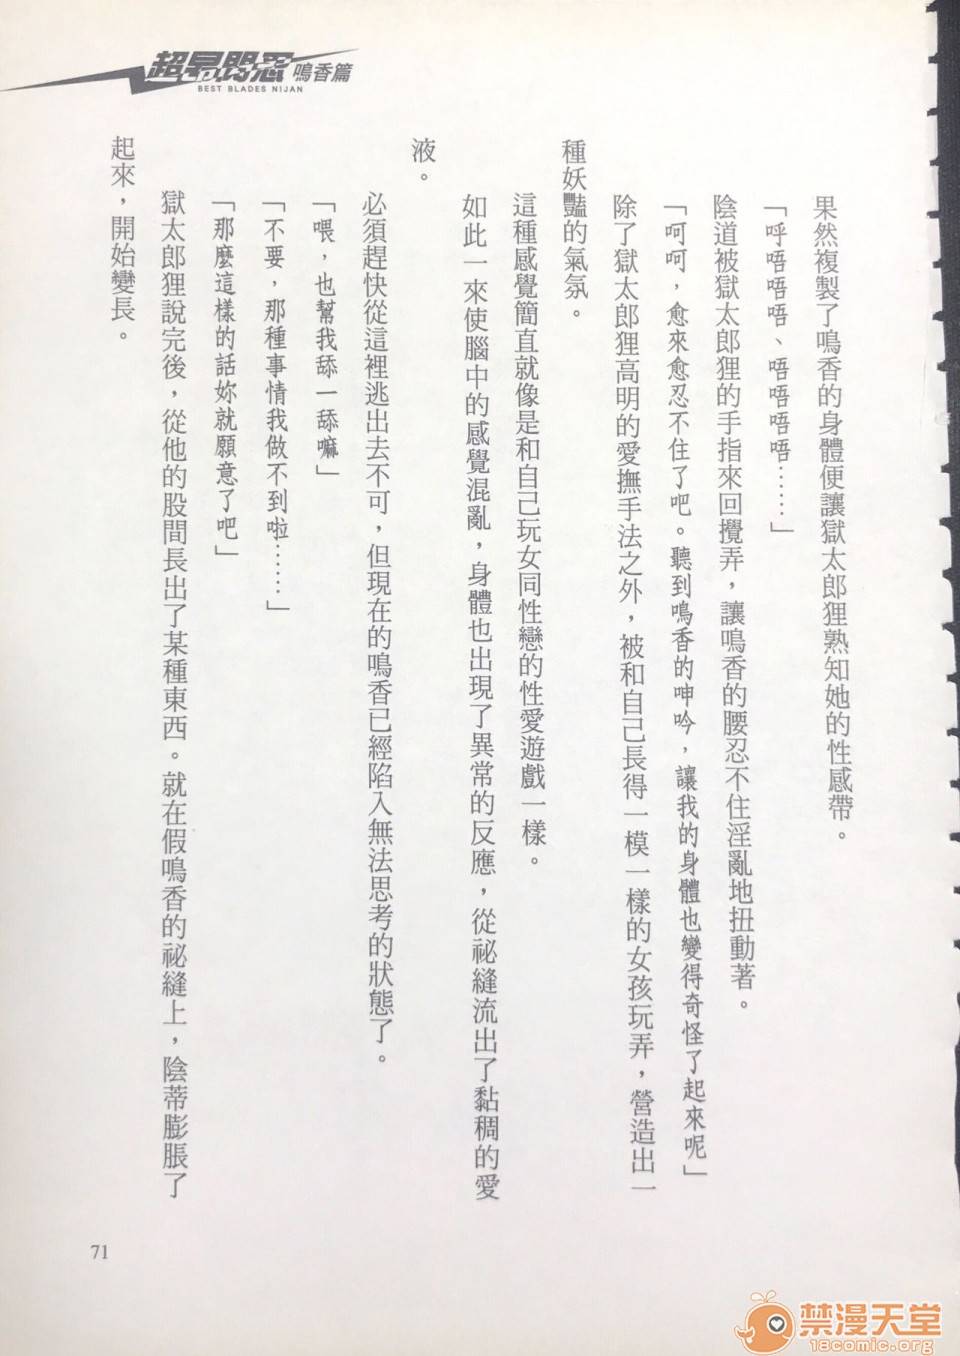 超昂閃忍 鳴香篇
BEST BLADES NIJAN
果然複製了鳴香的身體便讓獄太郎狸熟知她的性感帶。
「呼唔唔唔、唔唔唔唔……」
陰道被獄太郎狸的手指來回攪弄，讓鳴香的腰忍不住淫亂地扭動著。
「呵呵，愈來愈忍不住了吧。聽到鳴香的呻吟，讓我的身體也變得奇怪了起來呢」
除了獄太郎狸高明的愛撫手法之外，被和自己長得一模一樣的女孩玩弄，營造出一
種妖豔的氣氛。
這種感覺簡直就像是和自己玩女同性戀的性愛遊戲一樣。
如此一來使腦中的感覺混亂，身體也出現了異常的反應，從祕縫流出了黏稠的愛
液。
必須趕快從這裡逃出去不可，但現在的鳴香已經陷入無法思考的狀態了。
「喂，也幫我舔一舔嘛」
「不要，那種事情我做不到啦……」
「那麼這樣的話妳就願意了吧」
獄太郎狸說完後，從他的股間長出了某種東西。就在假鳴香的祕縫上，陰蒂膨脹了
起來，開始變長。
71
禁漫天堂
18comic.org